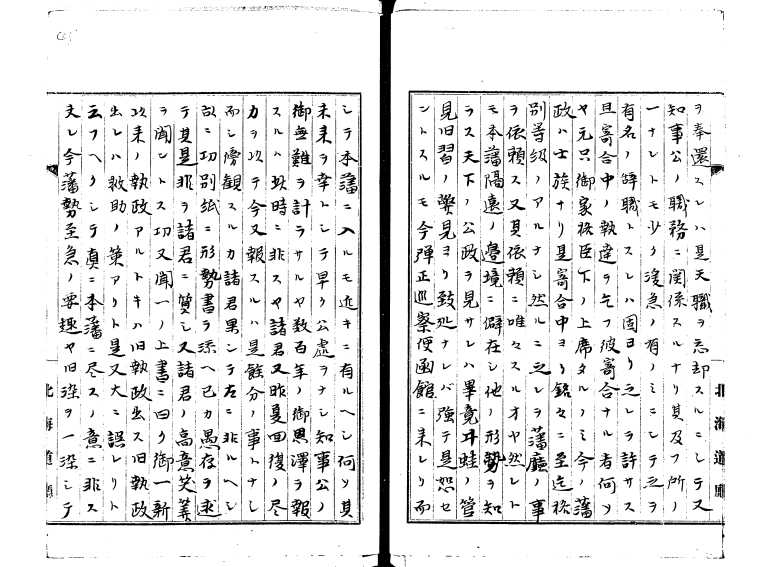 ヲ奉還スレハ是天職ヲ忘却スルニシテ又
知事公ノ職務ニ関係スルナリ其及フ所ノ
一ナレトモ少ク緩急ノ有ノミニシテ之ヲ
有名ノ辞職トスレハ固ヨリ之レヲ許サス
且寄合中ノ執達ヲ乞フ彼寄合ナル者何ソ
ヤ元只御家格臣下ノ上席タルノミ今ノ藩
政ハ士族ナリ是寄合中ヨリ銘々ニ至迄格
別等級ノアルナシ然ルニ之レヲ藩廳ノ事
ヲ依頼ス又其依頼ニ唯々スルオヤ然レト
モ本藩隔遠ノ邊境ニ僻在シ他ノ形勢ヲ知
ラス天下ノ公政ヲ見サレハ畢竟井蛙ノ管
見旧習ノ弊見ヨリ致処ナレバ強テ是恕セ
ントスルモ今弾正巡察使函館ニ来レリ而
北海道廳
シテ本藩ニ入ルモ近キニ有ルヘシ何ソ其
未来ヲ幸トシテ早ク公虚ヲナシ知事公ノ
御無難ヲ計ラサルヤ数百年ノ御恩澤ヲ報
スルハ此時ニ非スヤ諸君又昨夏回復ノ尽
力ヲ以テ今又報スルハ是餘分ノ事トナシ
而シ傍観スルカ諸君果シテ右ニ非ルヘシ
故ニ功別紙ニ形勢書ヲ添ヘ已カ愚存ヲ述
テ其是非ヲ諸君ニ質シ又諸君ノ高意笑筭
ヲ聞ントス功又聞一ノ上書ニ曰ク御一新
以来ノ執政アルトキハ旧執政出ス旧執政
出レハ救助ノ策アリト是又大ニ誤レリト
云フヘクシテ真ニ本藩ニ尽スノ意ニ非ス
夫レ今藩勢至急ノ要趣ヤ旧染ヲ一染シテ
北海道廳